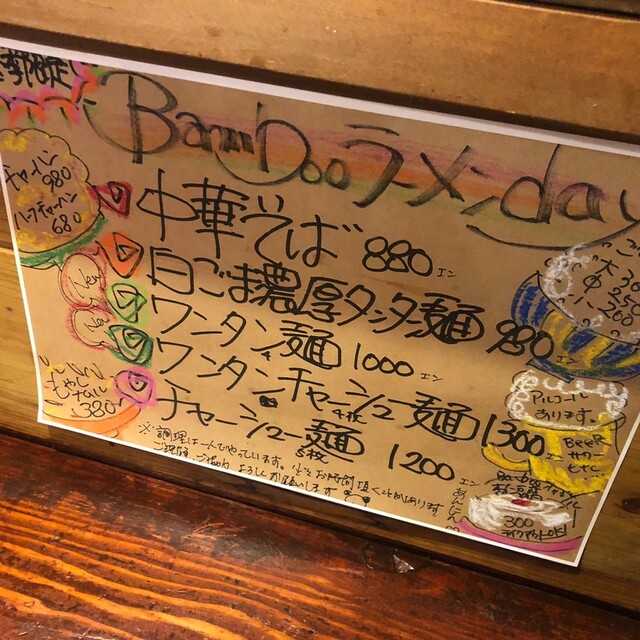 季節限定
Bamboo ラーメン day
チャーハン
980
ハーフチャーハン
680
中華そば 880エン
白ごま濃厚タンタン麺 980エン
New ワンタン麺 1000エン
New ワンタンチャーシュー麺 1300エン
チャーシュー麺 5枚 1200エン
380
※調理は一人でやっています。少々お時間頂くことがあります
ご理解・ご協力よろしくお願いします
ごはん
大 300
中 250
小 200
アルコール
あります。
BeeR
サワー
ETC
Bamboo
杏仁豆腐
300
テイクアウトOK!